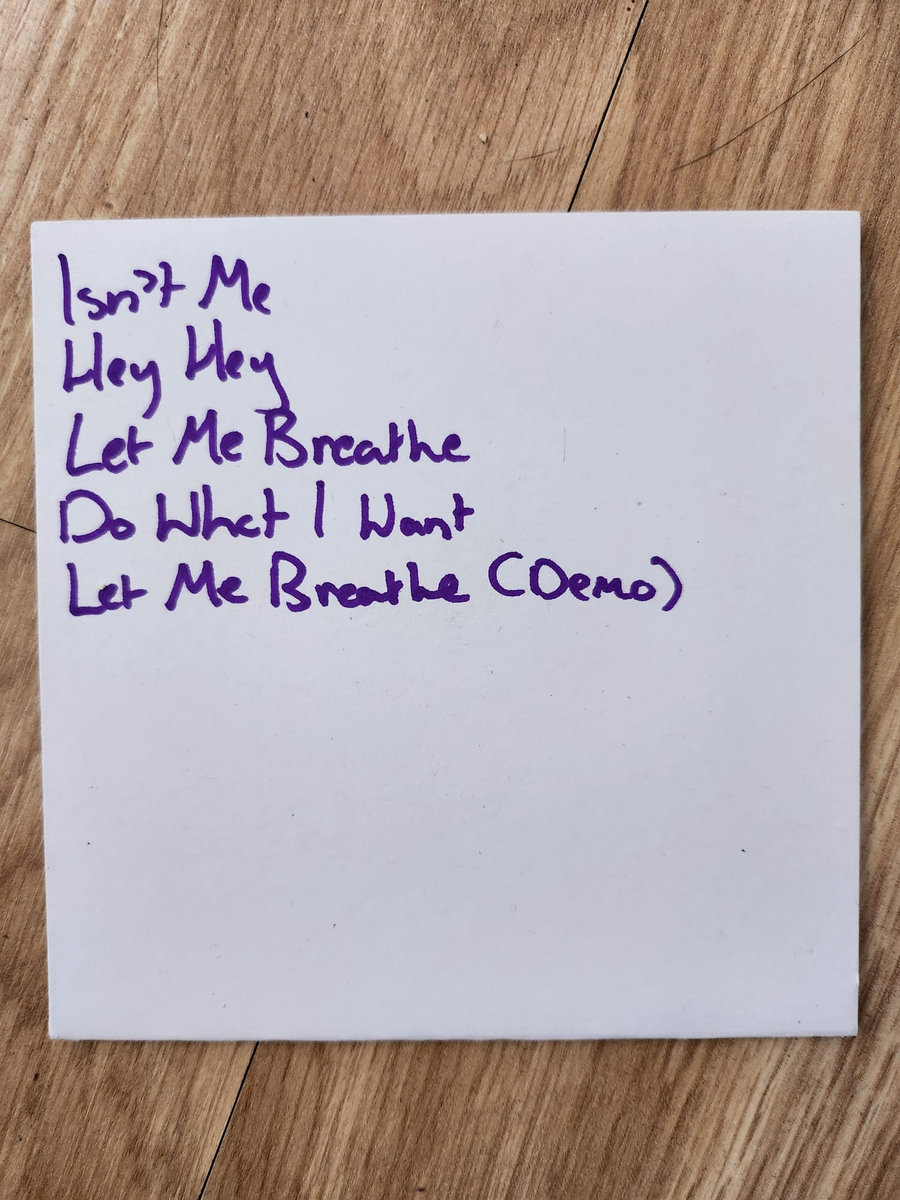 Isn't Me
Hey Hey
Let Me Breathe
Do What I Want
Let Me Breathe (Demo)